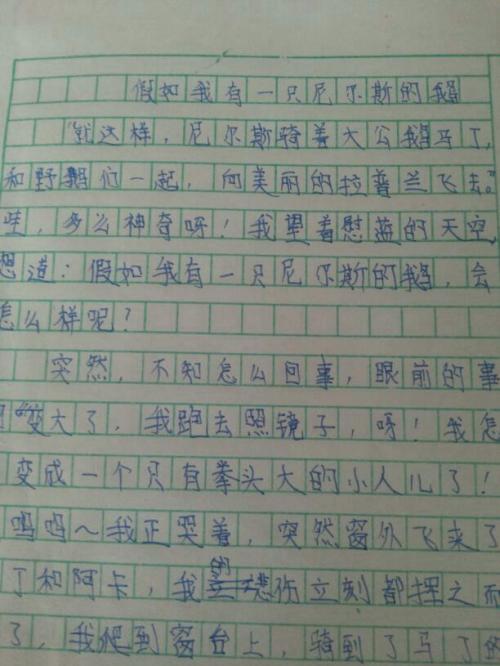 假如我有一只尼尔斯的鹅
"就这样，尼尔斯骑着大公鹅马丁，
和野鹅们一起，向美丽的拉普兰飞去。"
哇，多么神奇呀！我望着慰蓝的天空，
想道：假如我有一只尼尔斯的鹅，会
怎么样呢？
突然，不知怎么回事，眼前的事
变大了，我跑去照镜子，呀！我怎
变成一个只有拳头大的小人儿了！
呜呜～我正哭着，突然窗外飞来了
丁和阿卡，我的悲伤立刻都挥之而
了，我爬到窗台上，骑到了马丁的